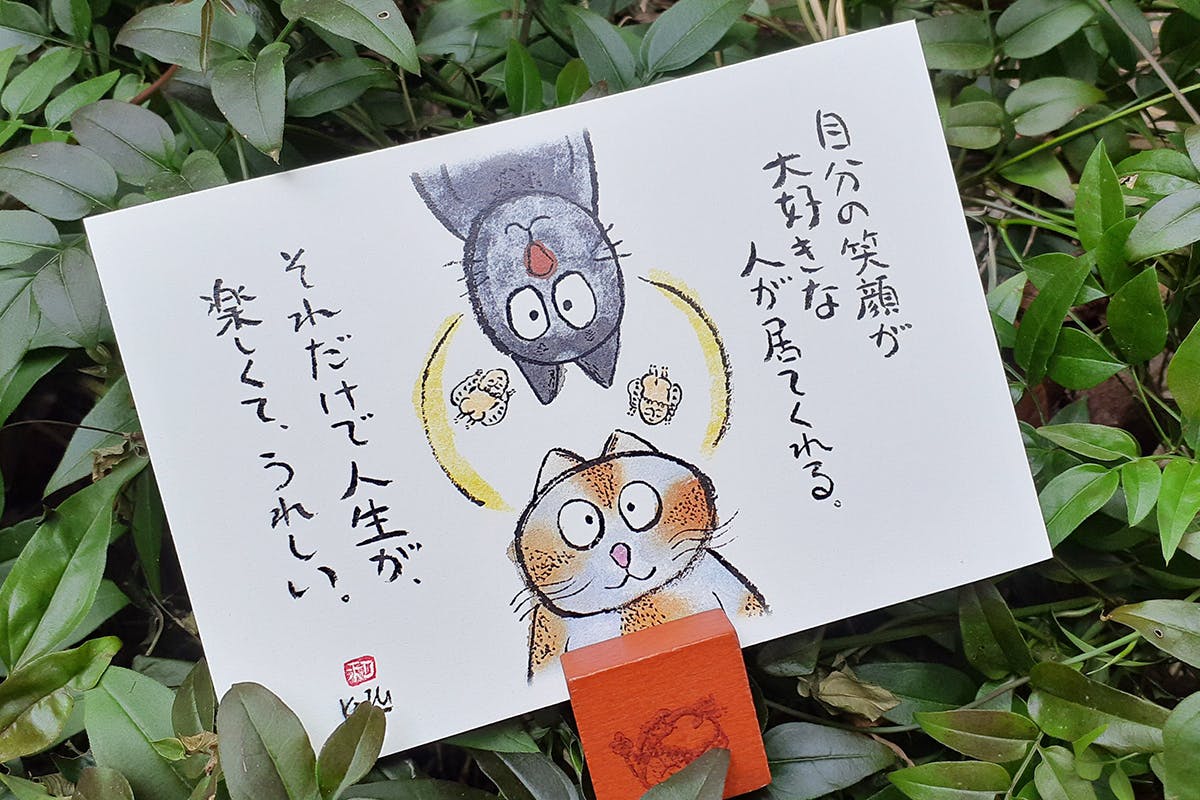 自分の笑顔が
大好きな
人が居てくれる。
それだけで人生が、
楽しくて、うれしい。